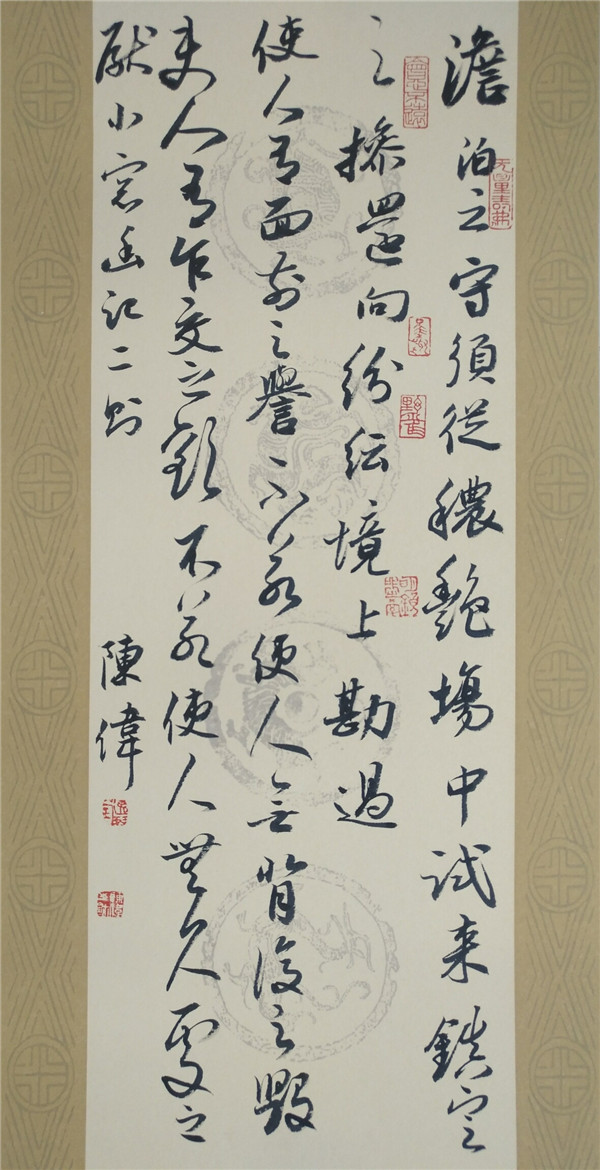 澹泊之守須從穠艷場中試来鎮定
之操還向紛紜境上勘過
使人有面前之譽不若使人無背後之毀
使人有乍交之歡不若使人無久處之
厭小窓幽記二則
陳偉